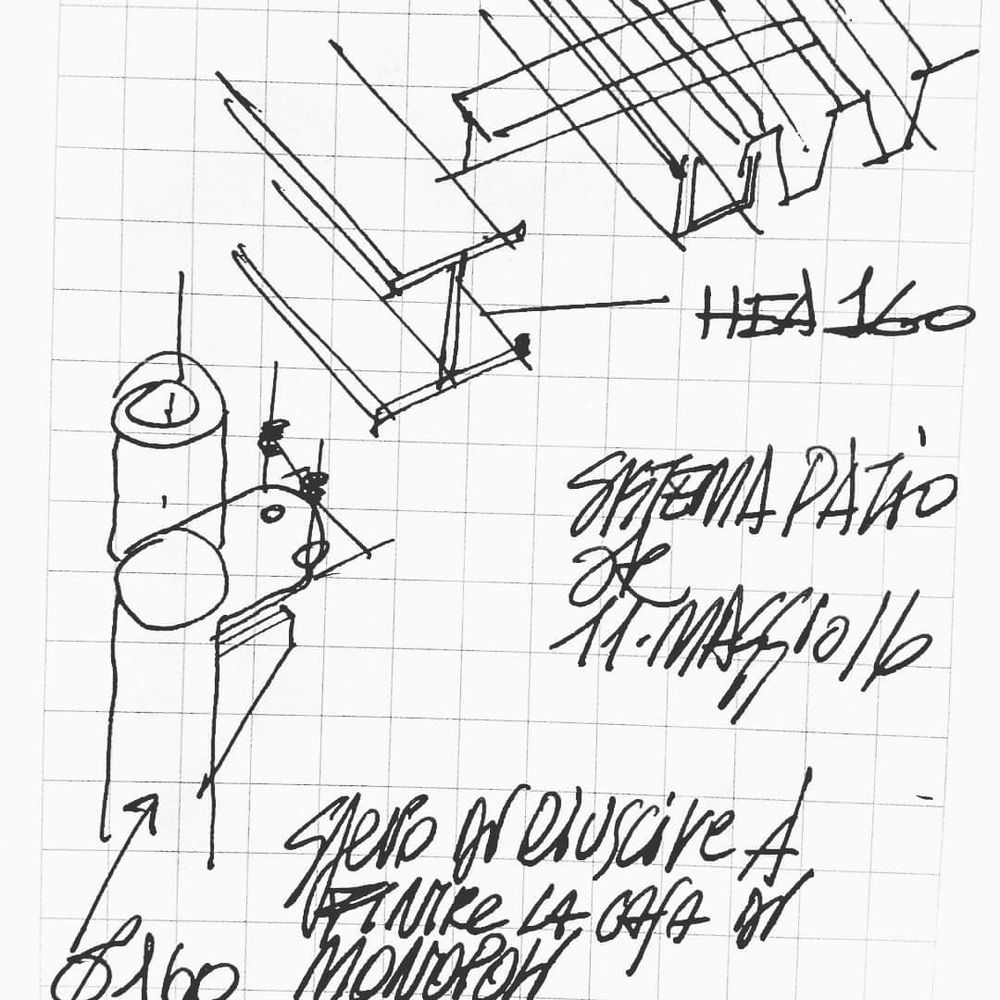 HEA 160
SISTEMA PATIO
11. MAGGIO 16
SPERO DI RIUSCIRE A
FINIRE LA CASA DI
MONOPOLI
Ø 160